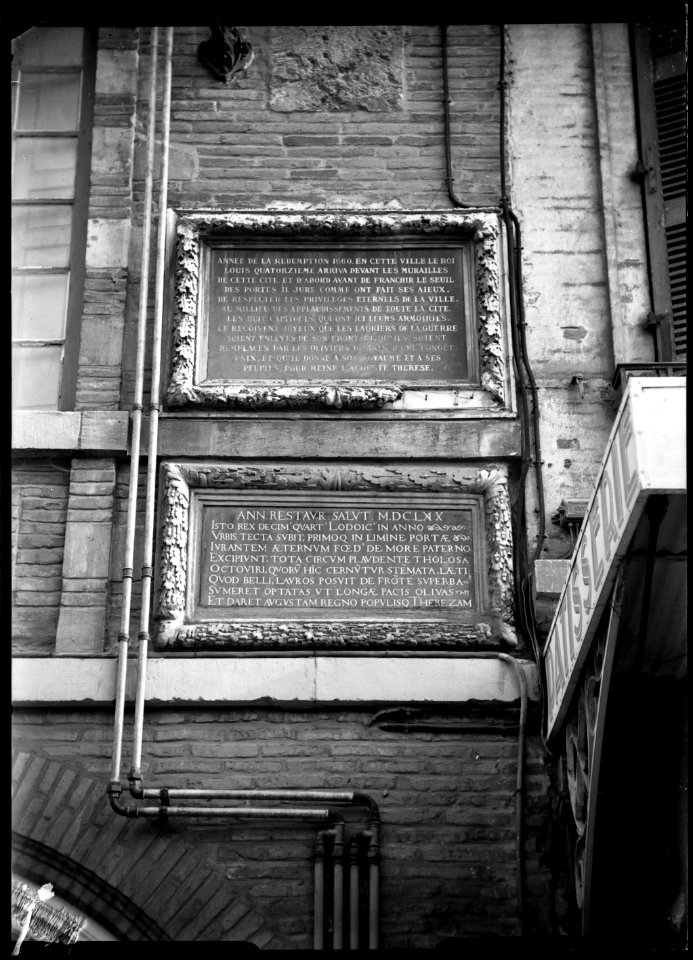 ANNÉE DE LA REDEMPTION 1660. EN CETTE VILLE LE ROI
LOUIS QUATORZIEME ARRIVA DEVANT LES MURAILLES
DE CETTE CITE, ET D'ABORD AVANT DE FRANCHIR LE SEUIL
DES PORTES IL JURE COMME ONT FAIT SES AIEUX,
DE RESPECTER LES PRIVILEGES ETERNELS DE LA VILLE.
AU MILIEU DES APPLAUDISSEMENTS DE TOUTE LA CITE,
LES HUIT CAPITOULS QUI ONT ICI LEURS ARMOIRIES,
LE REÇOIVENT JOYEUX QUE LES LAURIERS DE LA GUERRE
SOIENT ENLEVES DE SON FRONT ET QU'ILS SOIENT
REMPLACES PAR LES OLIVIERS DESIRES D'UNE LONGUE
PAIX, ET QU'IL DONNE A SON ROYAUME ET A SES
PEUPLES, POUR REINE L'AUGUSTE THERESE.
ANN. RESTAVR. SALVT. M.DC.LXX
ISTO REX DECIM' QVART' LODOIC' IN ANNO
VRBIS TECTA SVBIT, PRIMOQ IN LIMINE PORTÆ
IVRANTEM ÆTERNVM FŒD' DE MORE PATERNO
EXCIPIVNT, TOTA CIRCVM PLAVDENTE THOLOSA
OCTOVIRI, QVORV̄ HIC CERNV̄TVR STEMATA, LÆTI
QVOD BELLI, LAVROS POSVIT DE FRŌTE SVPERBA
SVMERET OPTATAS VT LONGÆ PACIS OLIVAS
ET DARET AVGVSTAM REGNO POPVLISQ THEREZAM
PATISSERIE